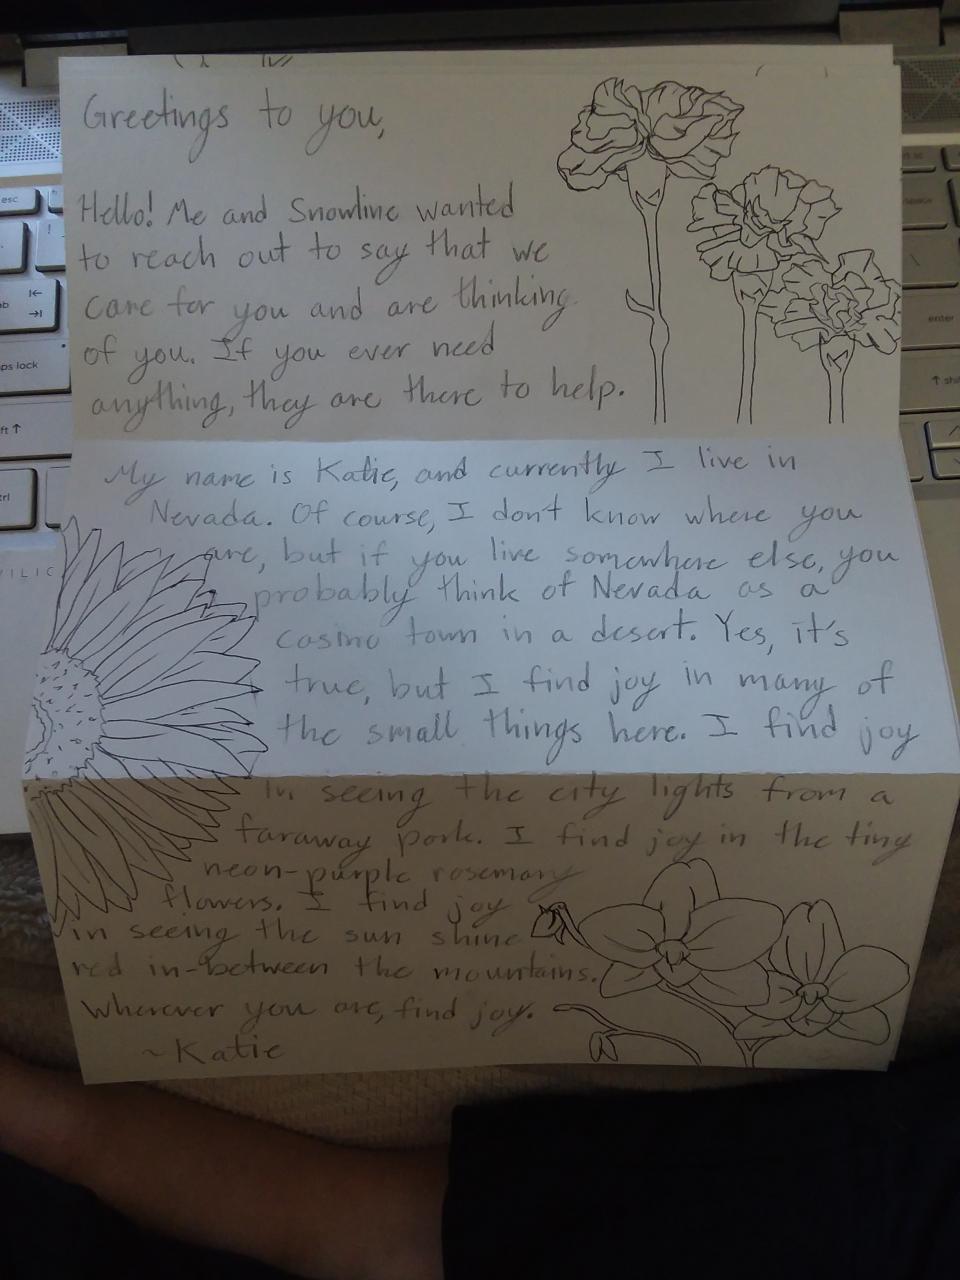 Greetings to you,
Hello! Me and Snowline wanted
to reach out to say that we
care for you and are thinking
of you. If you ever need
anything, they are there to help.
My name is Katie, and currently I live in
Nevada. Of course, I don't know where you
are, but if you live somewhere else, you
probably think of Nevada as a
casino town in a desert. Yes, it's
true, but I find joy in many of
the small things here. I find joy
in seeing the city lights from a
faraway park. I find joy in the tiny
neon-purple rosemary
flowers. I find joy
in seeing the sun shine
red in-between the mountains.
Wherever you are, find joy.
~Katie
esc
caps lock
enter